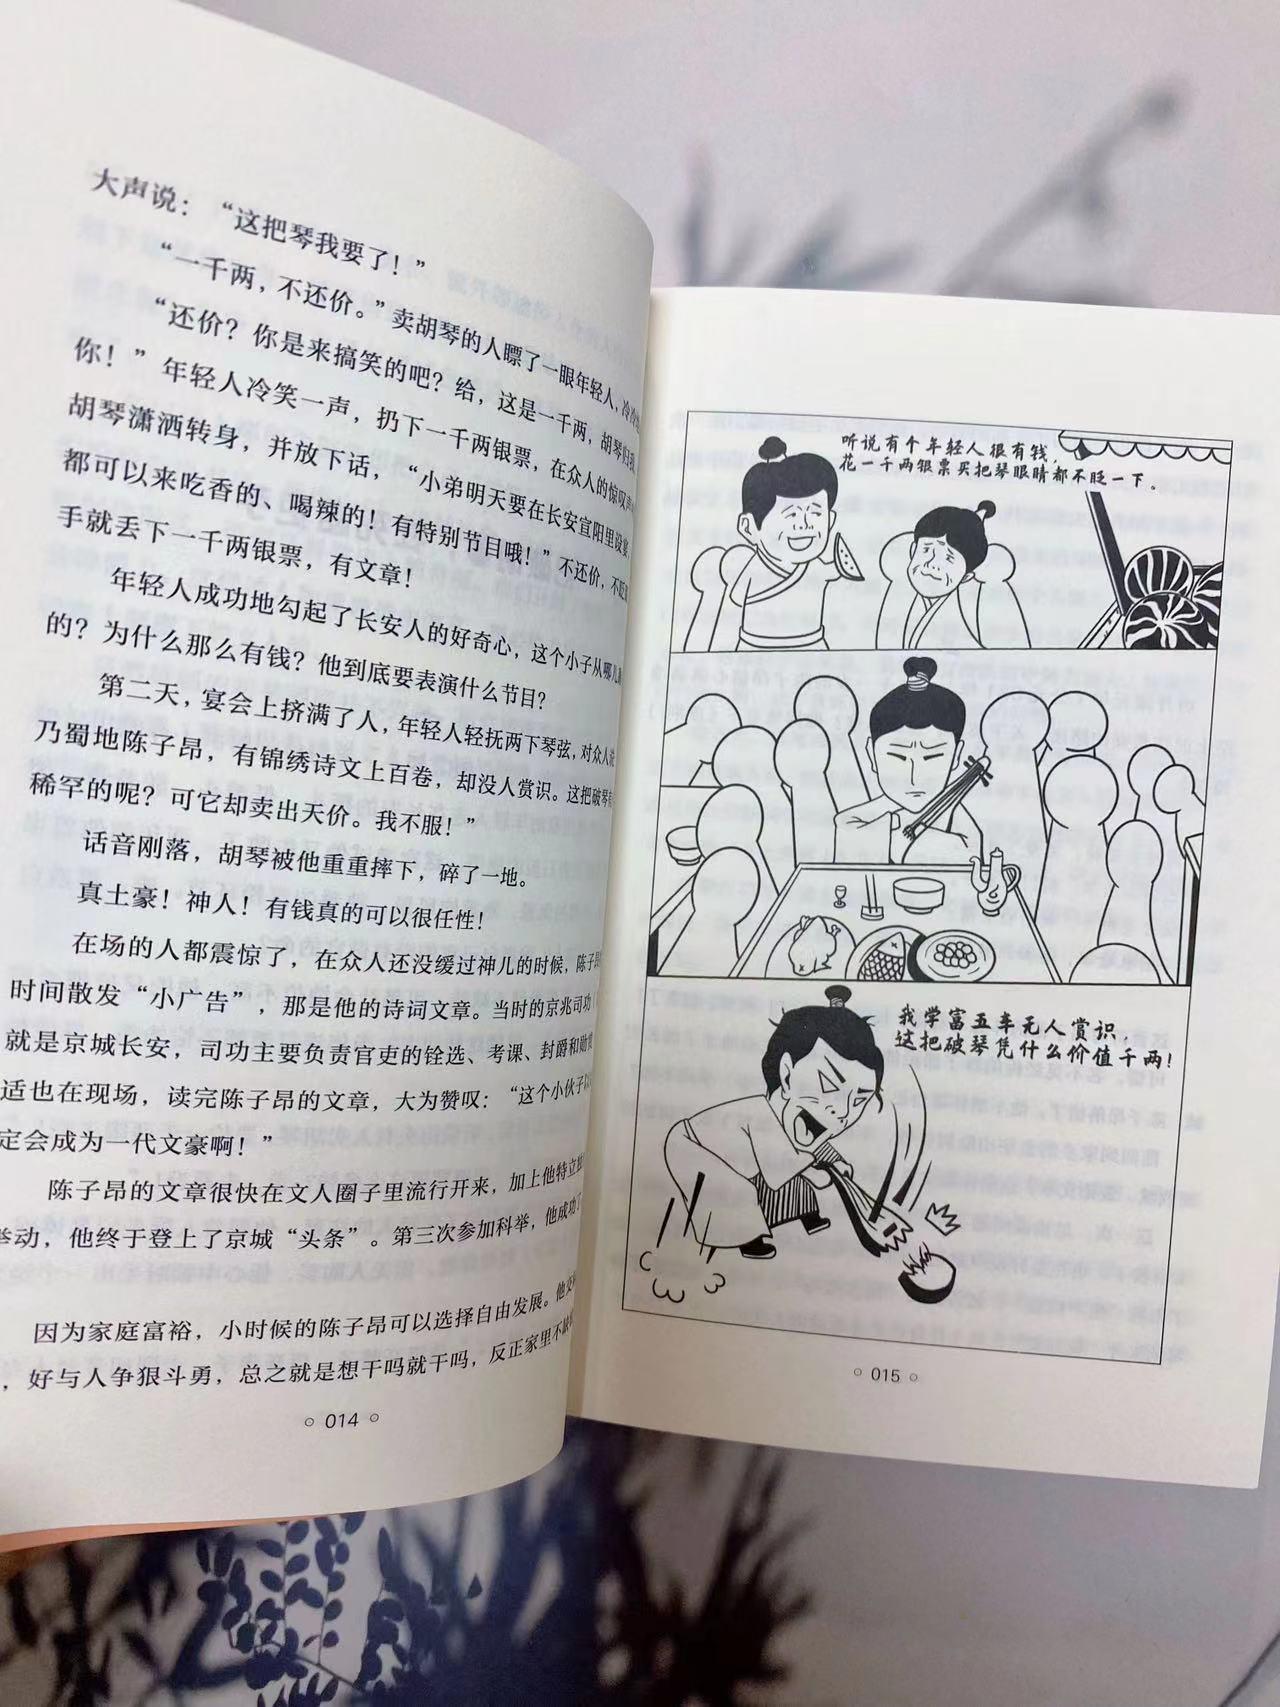 大声说：“这把琴我要了！”
“一千两，不还价。”卖胡琴的人瞟了一眼年轻人，冷
“还价？你是来搞笑的吧？给，这是一千两，胡琴归我
你！”年轻人冷笑一声，扔下一千两银票，在众人的惊叹声
胡琴潇洒转身，并放下话，“小弟明天要在长安宣阳里设宴
都可以来吃香的、喝辣的！有特别节目哦！”不还价，不眨
手就丢下一千两银票，有文章！
年轻人成功地勾起了长安人的好奇心，这个小子从哪儿
的？为什么那么有钱？他到底要表演什么节目？
第二天，宴会上挤满了人，年轻人轻抚两下琴弦，对众人
乃蜀地陈子昂，有锦绣诗文上百卷，却没人赏识。这把破琴有
稀罕的呢？可它却卖出天价。我不服！”
话音刚落，胡琴被他重重摔下，碎了一地。
真土豪！神人！有钱真的可以很任性！
在场的人都震惊了，在众人还没缓过神儿的时候，陈子昂
时间散发“小广告”，那是他的诗词文章。当时的京兆司功
就是京城长安，司功主要负责官吏的铨选、考课、封爵和勋
适也在现场，读完陈子昂的文章，大为赞叹：“这个小伙子
定会成为一代文豪啊！”
陈子昂的文章很快在文人圈子里流行开来，加上他特立
举动，他终于登上了京城“头条”。第三次参加科举，他成功
因为家庭富裕，小时候的陈子昂可以选择自由发展。他
，好与人争狠斗勇，总之就是想干吗就干吗，反正家里不
014
听说有个年轻人很有钱，
花一千两银票买把琴眼睛都不眨一下。
我学富五车无人赏识，
这把破琴凭什么价值千两！
015